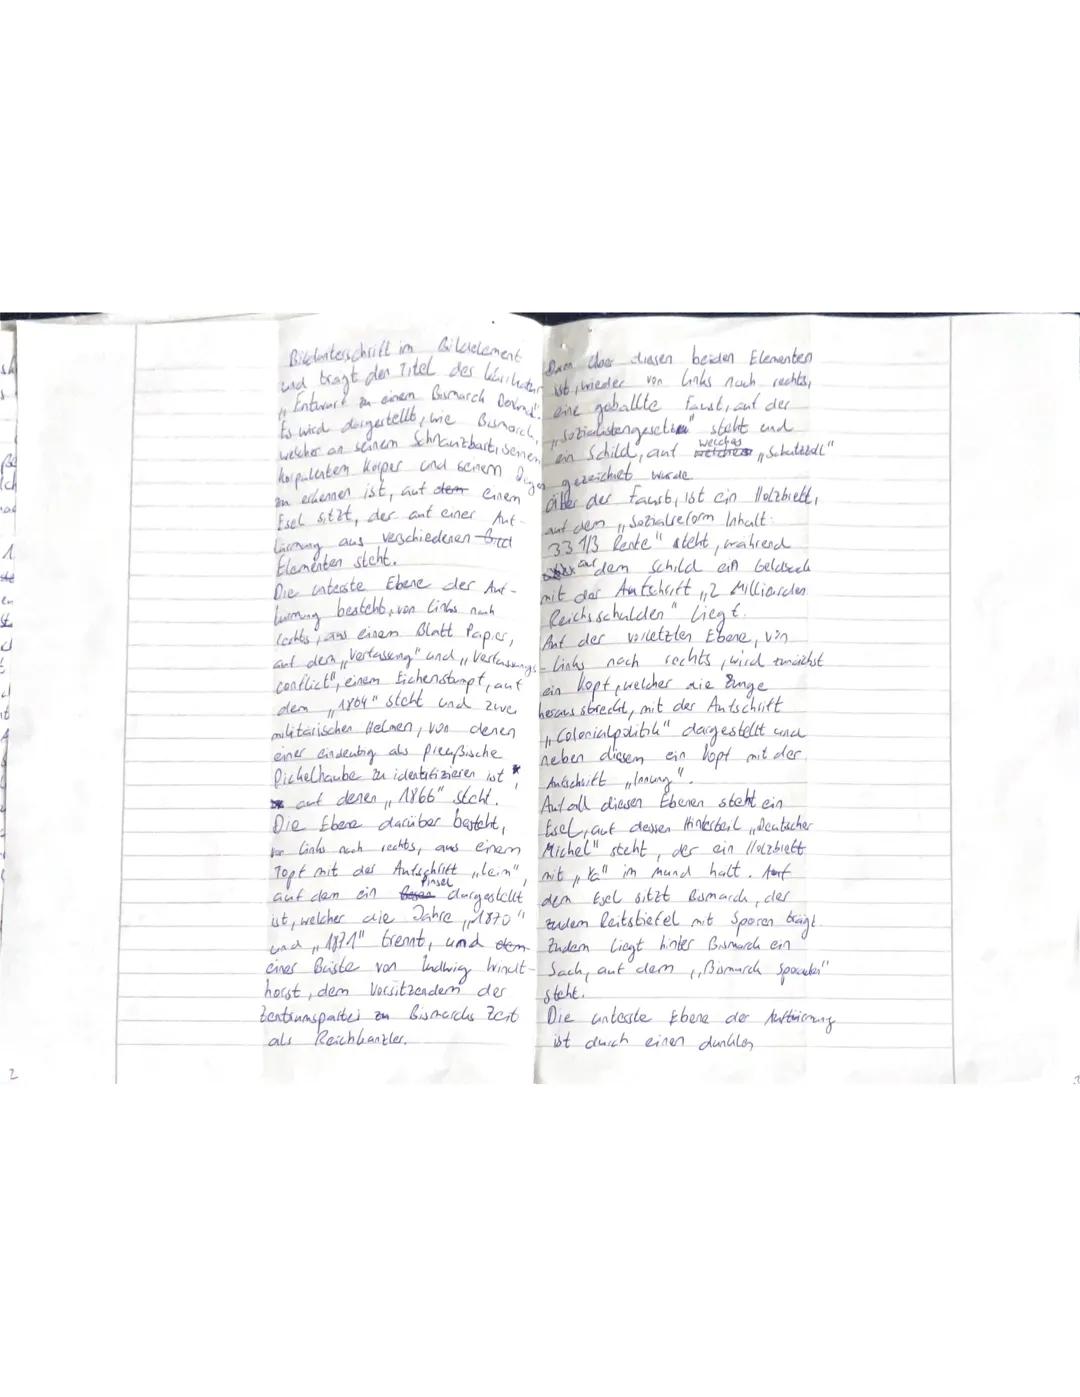 Bildunterschrift im Bildelement
und trägt den Titel des Karikatur
„Entwurf zu einem Bismarck Denkmal".
Es wird dargestellt, wie Bismarck,
welcher an seinem Schnauzbart, seinen
korpulentem Körper und seinem
zu erkennen ist, auf dem einem
Esel sitzt, der auf einer Auf-
türmung aus verschiedenen
Elementen steht.
Die unterste Ebene der Auf-
türmung besteht, von links nach
rechts, aus einem Blatt Papier,
auf dem „Verfassung" und „Verfassungs-
conflict", einem Eichenstumpf, auf
dem „1864" steht und zwei
militärischen Helmen, von denen
einer eindeutig als preußische
Pickelhaube zu identifizieren ist,
auf denen „1866" steht.
Die Ebene darüber besteht,
von links nach rechts, aus einem
Topf mit der Aufschrift „Leim",
auf dem ein Pinsel dargestellt
ist, welcher die Jahre „1870"
und „1871" trennt, und dem
einer Büste von Ludwig Windt-
horst, dem Vorsitzendem der
Zentrumspartei zu Bismarcks Zeit
als Reichkanzler.
2
Dann über diesen beiden Elementen
ist, wieder von links nach rechts,
eine geballte Faust, auf der
„Sozialistengesetze" steht und
ein Schild, auf welches „Schutzzoll"
gezeichnet wurde
Über der Faust, ist ein Holzbrett,
auf dem „Sozialreform Inhalt:
33 1/3 Rente" steht, während
auf dem Schild ein Geldsack
mit der Aufschrift „2 Milliarden
Reichsschulden" liegt.
Auf der vorletzten Ebene, von
links nach rechts, wird zunächst
ein Kopf, welcher die Zunge
herausstreckt, mit der Aufschrift
„Colonialpolitik" dargestellt und
neben diesem ein Kopf mit der
Aufschrift „Innung".
Auf all diesen Ebenen steht ein
Esel, auf dessen Hinterteil „Deutscher
Michel" steht, der ein Holzbrett
mit „Ya" im Mund hält. Auf
dem Esel sitzt Bismarck, der
zudem Reitstiefel mit Sporen trägt.
Zudem liegt hinter Bismarck ein
Sack, auf dem „Bismarck Spenden"
steht.
Die unterste Ebene der Auftürmung
ist durch einen dunklen